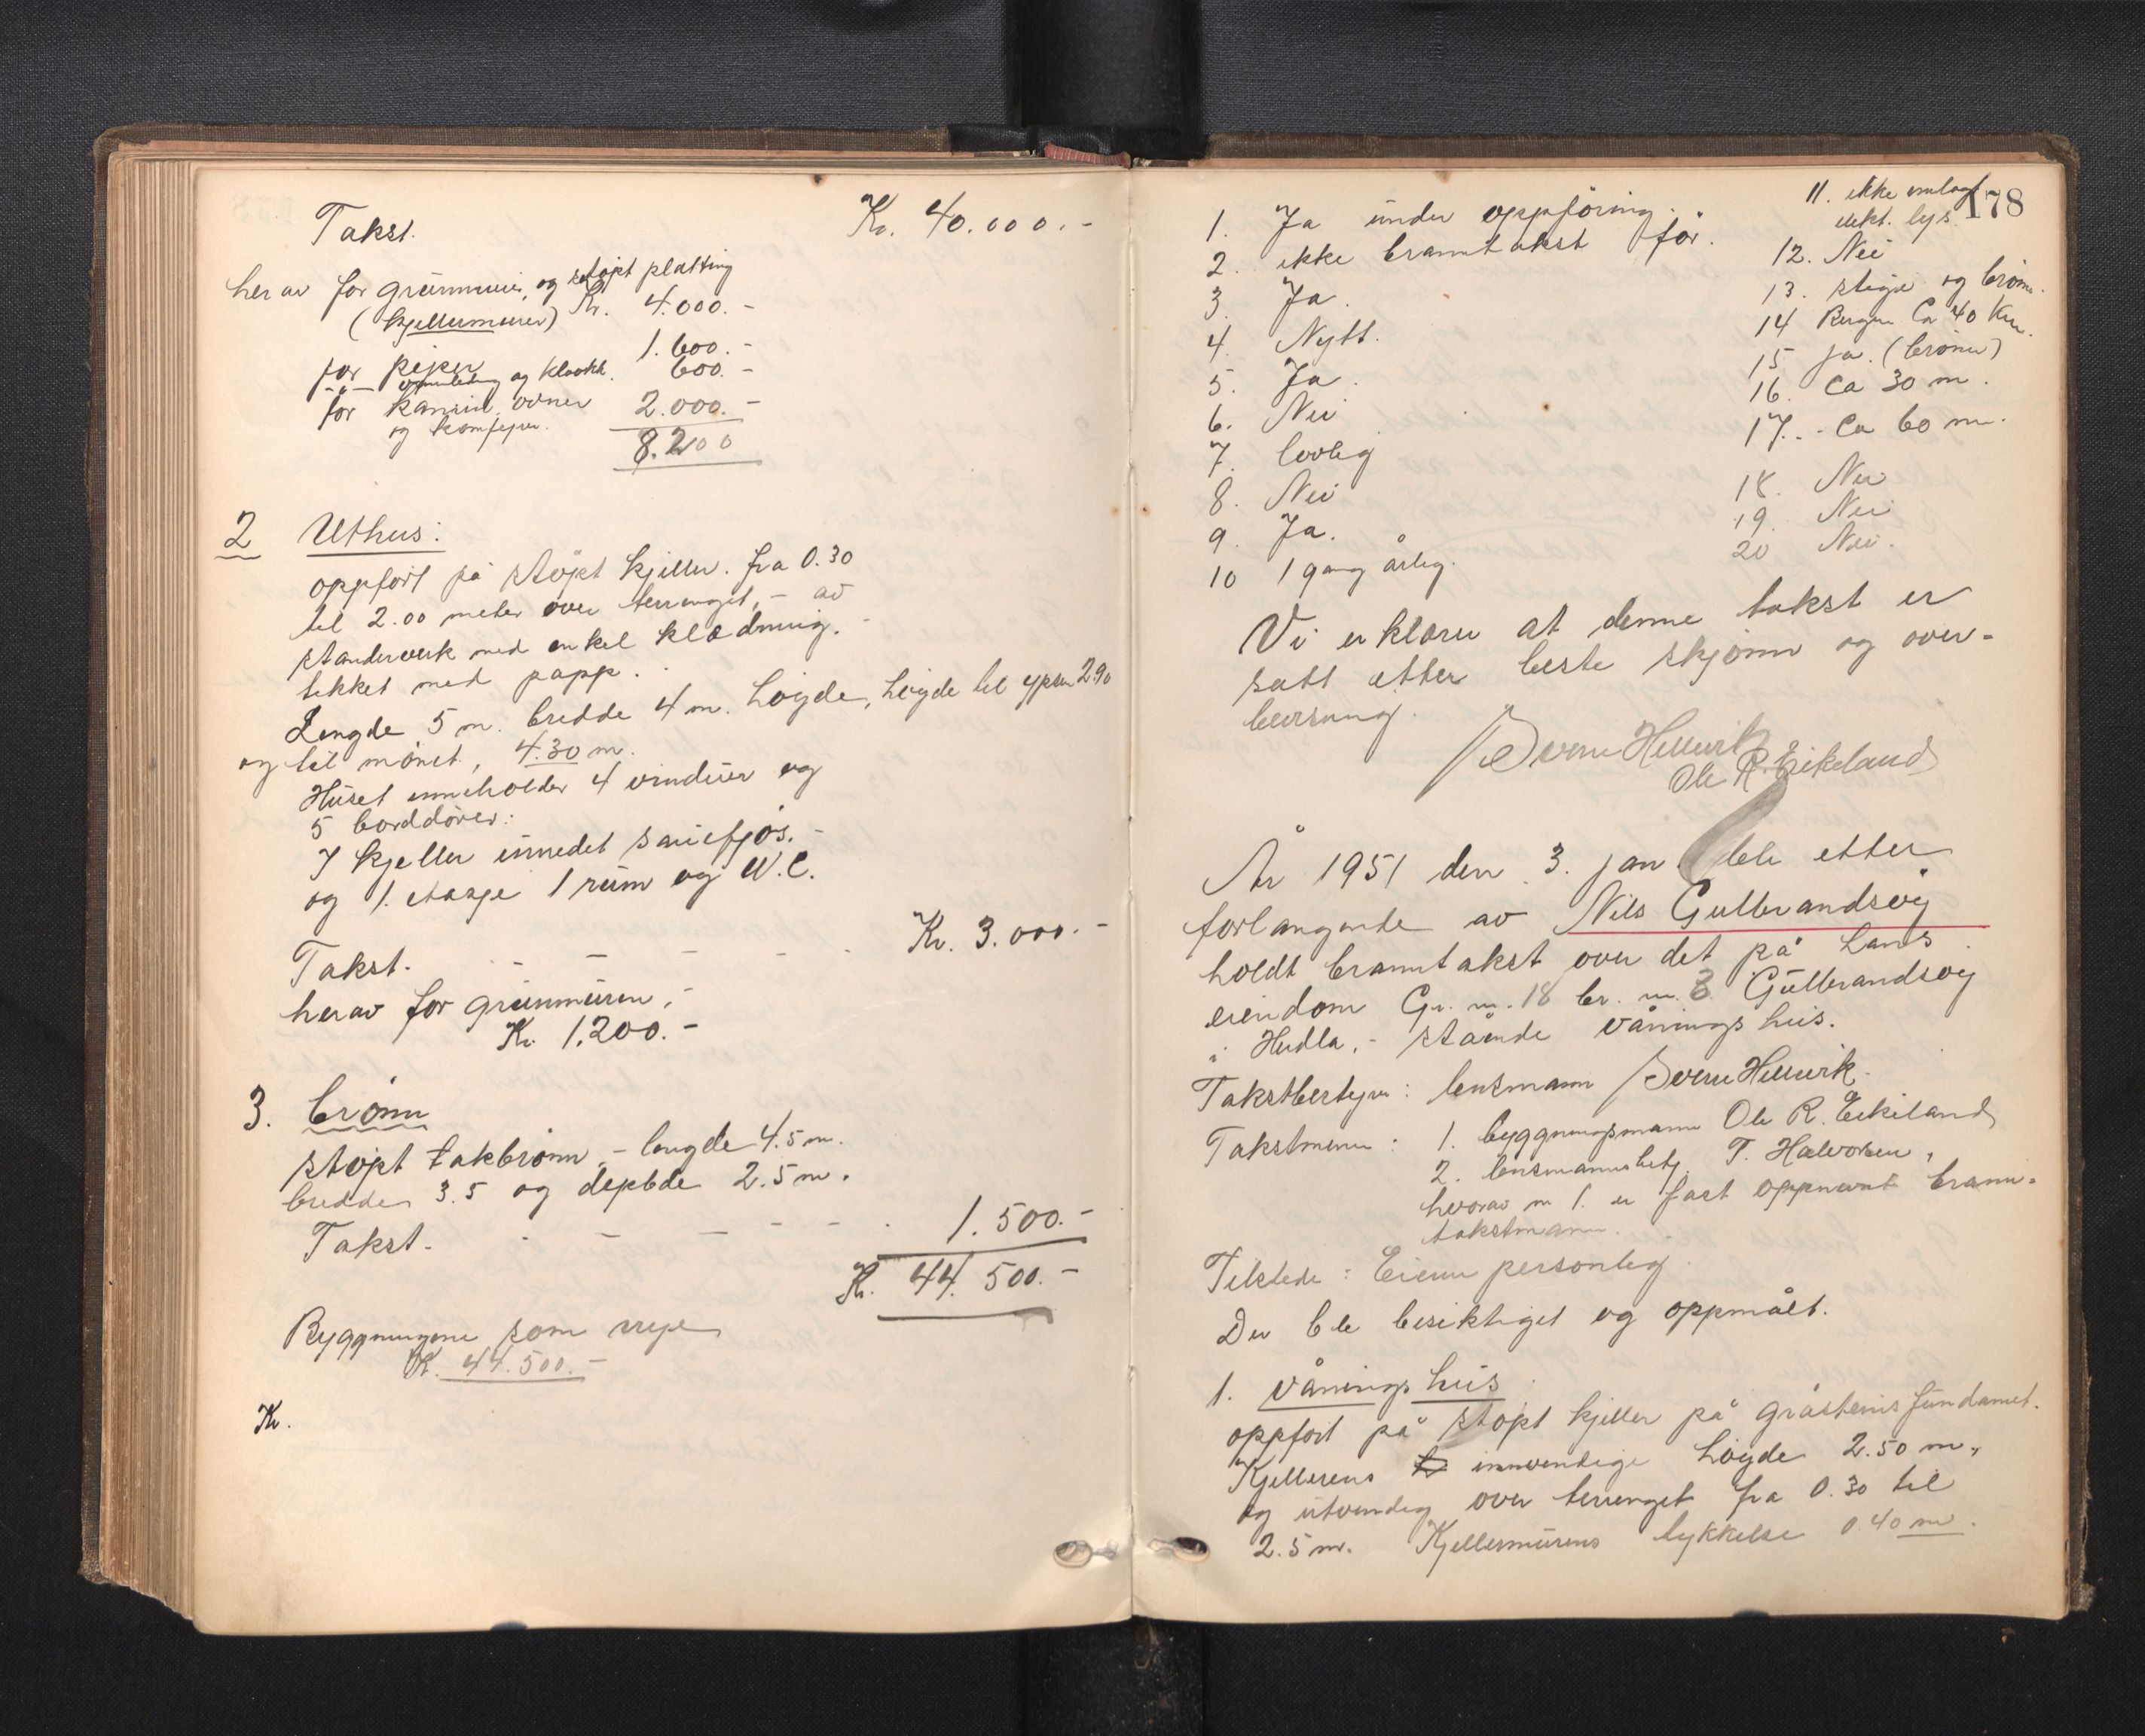 Takst. Kr. 40.000.-
herav for grunnmur, og støpt platting
(kjellermurer) Kr. 4.000.-
for peiper 1.600.-
-"- og kloakk. 600.-
for kamin, ovner 2.000.-
og komfyrer.
8.200
2 Uthus:
oppført på støpt kjeller. fra 0.30
til 2.00 meter over terrenget, - av
standerverk med enkel kledning. -
tekket med papp.
Lengde 5 m. bredde 4 m. høyde, høyde til gesims 2.90
og til mønet, 4.30 m.
Huset inneholder 4 vinduer og
5 borddører:
I kjeller innredet sauefjøs. -
og 1. etasje 1 rum og W.C.
Takst. - - - - - Kr. 3.000.-
herav for grunnmuren, -
Kr. 1.200.-
3. brønn
støpt takbrønn, - lengde 4.5 m.
bredde 3.5 og dybde 2.5 m.
Takst. - - - - - 1.500.-
Kr. 44.500.-
Byggningene som nye
Kr. 44.500.-
Kr.
178
1. Ja under oppføring.
2. ikke branntakst før.
3. Ja.
4. Nytt.
5. Ja.
6. Nei
7. lovlig
8. Nei
9. Ja.
10 1 gang årlig.
11. ikke innlagt
elekt. lys.
12. Nei
13. stige og brønn.
14 Bergen Ca 40 Km.
15 Ja. (brønn)
16. Ca 30 m.
17. - Ca 60 m.
18. Nei
19. Nei
20 Nei.
Vi erklærer at denne takst er
satt etter beste skjønn og over-
bevisning.
Sverre Hillevik
Ole R. Eikeland
År 1951 den 3. jan ble etter
forlangende av Nils Gulbrandsøy
holdt branntakst over det på hans
eiendom Gr. nr. 18 br. nr. 8 Gulbrandsøy
i Hudla, - stående våningshus.
Takstbestyrer: lensmann Sverre Hillevik.
Takstmenn: 1. byggningsmann Ole R. Eikeland
2. lensmannsbetj. T. Halvorsen,
hvorav nr 1. er fast oppnevnt brann-
takstmann.
Tilstede: Eieren personlig.
Der ble besiktiget og oppmålt.
1. våningshus
oppført på støpt kjeller på gråsteins fundament.
Kjellerens innvendige høyde 2.50 m,
og utvendig over terrenget fra 0.30 til
2.5 m. Kjellermurens tykkelse 0.40 m.